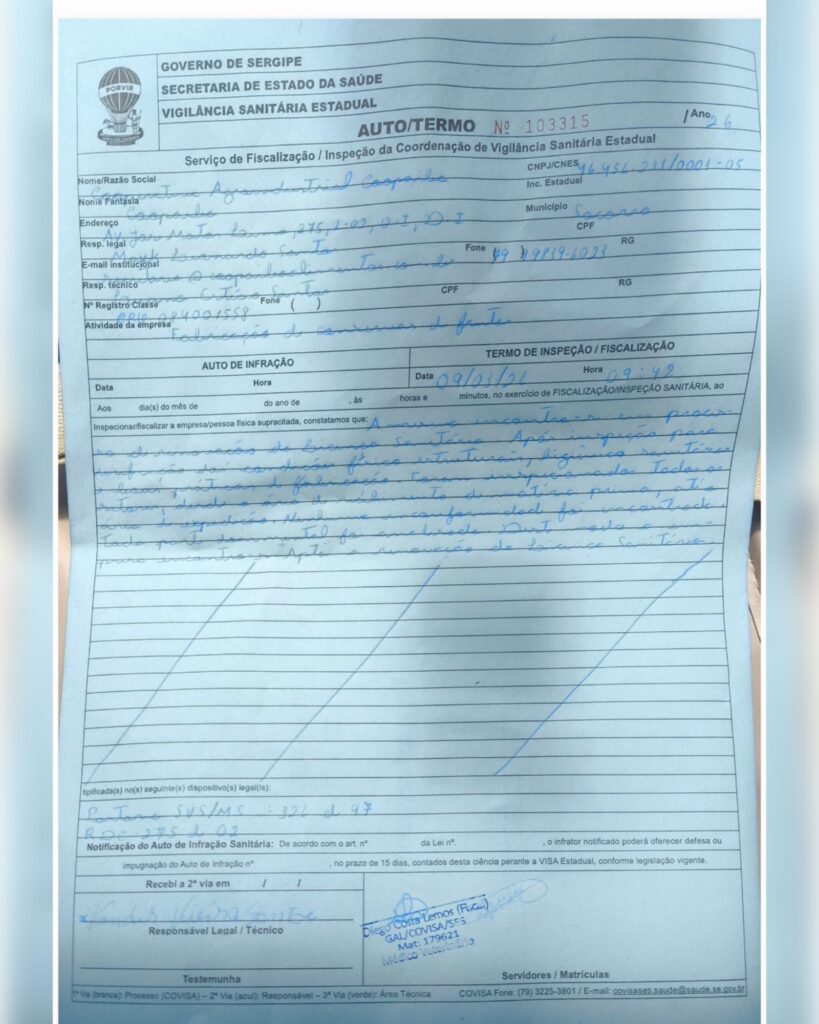 PORVIR
GOVERNO DE SERGIPE
SECRETARIA DE ESTADO DA SAÚDE
VIGILÂNCIA SANITÁRIA ESTADUAL
AUTO/TERMO Nº 103315 /Ano 26
Serviço de Fiscalização / Inspeção da Coordenação de Vigilância Sanitária Estadual
Nome/Razão Social Cooperativa Agroindustrial Coopaiba CNPJ/CNES
Inc. Estadual
Nome Fantasia Coopaiba
Endereço Município Socorro
Resp. legal CPF
E-mail institucional Fone RG
Resp. técnico
Nº Registro Classe Fone ( ) CPF RG
Atividade da empresa Fabricação de conservas de frutas
AUTO DE INFRAÇÃO TERMO DE INSPEÇÃO / FISCALIZAÇÃO
Data Hora Data 09/03/26 Hora 09:42
Aos dia(s) do mês de do ano de , às horas e minutos, no exercício de FISCALIZAÇÃO/INSPEÇÃO SANITÁRIA, ao
Inspecionar/fiscalizar a empresa/pessoa física supracitada, constatamos que: A mesma encontra-se em proces-
so de renovação de Licença Sanitária. Após inspeção para
verificação das condições físico estruturais, higiênico sanitárias
e boas práticas de fabricação. Foram inspecionados todos os
setores, desde a área de recebimento de matéria prima, até a
área de expedição. Nenhuma inconformidade foi encontrada.
Toda parte documental foi analisada. Deste modo a
encontra-se "Apta" a renovação da Licença Sanitária.
tipificada(s) no(s) seguinte(s) dispositivo(s) legal(is):
Portaria SVS/MS : 326 de 97
RDC 275 de 02
Notificação do Auto de Infração Sanitária: De acordo com o art. nº da Lei nº. , o infrator notificado poderá oferecer defesa ou
impugnação do Auto de Infração nº , no prazo de 15 dias, contados desta ciência perante a VISA Estadual, conforme legislação vigente.
Recebi a 2ª via em / /
Responsável Legal / Técnico
Diego Costa Lemos (Fisc.)
GAL/COVISA/SES
Mat: 179621
Médico Veterinário
Testemunha
Servidores / Matrículas
1ª Via (branca): Processo (COVISA) – 2ª Via (azul): Responsável – 3ª Via (verde): Área Técnica COVISA Fone: (79) 3225-3801 / E-mail: covisases.saude@saude.se.gov.br